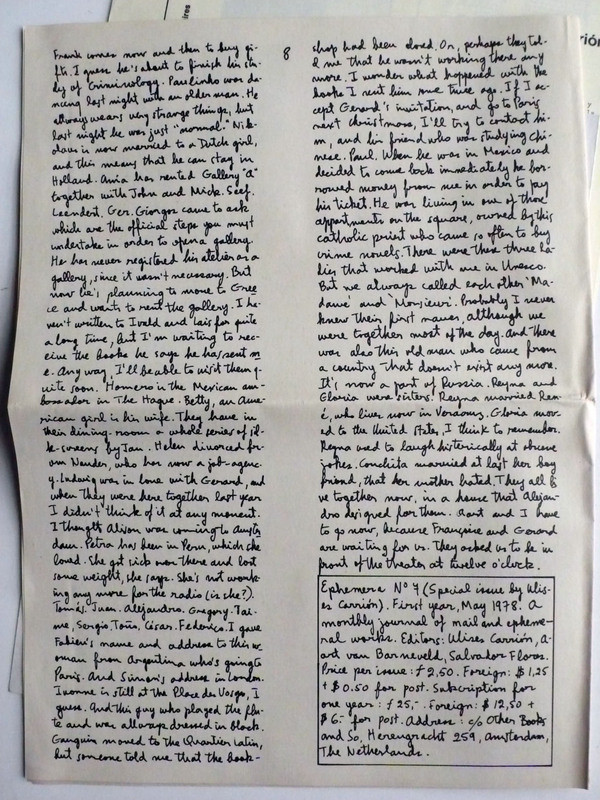 8
Frank comes now and then to buy gi-
fts. I guess he's about to finish his stu-
dy of Criminology. Paulinho was da-
ncing last night with an older man. He
always wears very strange things, but
last night he was just "normal." Nik-
olaus is now married to a Dutch girl,
and this means that he can stay in
Holland. Ania has rented Gallery "A"
together with John and Mick. Seef.
Leendert. Ger. Giorgos came to ask
which are the official steps you must
undertake in order to open a gallery.
He has never registered his atelier as a
gallery, since it wasn't necessary. But
now he's planning to move to Gree
ce and wants to rent the gallery. I ha-
ven't written to Ivald and Lais for quite
a long time, but I'm waiting to rec-
eive the books he says he has sent m
e. Any way, I'll be able to visit them q-
uite soon. Homero is the Mexican am-
bassador in The Hague. Betty, an Ame
rican girl is his wife. They have in
their dining-room a whole series of sil-
k-screens by Jan. Helen divorced fr-
om Nander, who has now a job-agenc-
y. Ludwig was in love with Gerard, and
when they were here together last year
I didn't think of it at any moment.
I thought Alison was coming to Amste
dam. Petra has been in Peru, which she
loved. She got sick over there and lost
some weight, she says. She's not work-
ing any more for the radio (is she?).
Tomás. Juan. Alejandro. Gregory. Jai-
me, Sergio, Toño, César. Federico. I gave
Fabien's name and address to this w-
oman from Argentina who's going to
Paris. And Simon's address in London.
Ivonne is still at the Place des Vosges, I
guess. And this guy who played the flu-
te and was always dressed in black.
Gauguin moved to the Quartier Latin,
but someone told me that the book-
shop had been closed. Or, perhaps they tol-
d me that he wasn't working there any
more. I wonder what happened with the
books I sent him some time ago. If I ac-
cept Gerard's invitation, and go to Paris
next christmas, I'll try to contact hi-
m, and his friend who was studying chi-
nese. Paul. When he was in Mexico and
decided to come back immediately he bor-
rowed money from me in order to pay
his ticket. He was living in one of those
appartments on the square, owned by this
catholic priest who came so often to buy
crime novels. There were these three la-
dies that worked with me in Unesco.
But we always called each other 'Ma-
dame' and 'Monsieur'. Probably I never
knew their first names, although we
were together most of the day. And there
was also this old man who came from
a country that doesn't exist any more.
It's now a part of Russia. Reyna and
Gloria were sisters. Reyna married Ren-
é, who lives now in Veracruz. Gloria mov-
ed to the United States, I think to remember.
Reyna used to laugh histerically at obscene
jokes. Conchita married at last her boy
friend, that her mother hated. They all li
ve together now, in a house that Alejan-
dro designed for them. Aart and I have
to go now, because Françoise and Gerard
are waiting for us. They asked us to be in
front of the theater at twelve o'clock.
Ephemera Nº 7 (Special issue by Ulis-
es Carrión). First year, May 1978. A
monthly journal of mail and epheme-
ral works. Editors: Ulises Carrión, A-
art van Barneveld, Salvador Flores.
Price per issue: ƒ 2,50. Foreign: $ 1,25
+ $ 0.50 for post. Subscription for
one year: ƒ 25,-. Foreign: $ 12,50 +
$ 6- for post. Address: c/o Other Books
and So, Herengracht 259, Amsterdam,
The Netherlands.